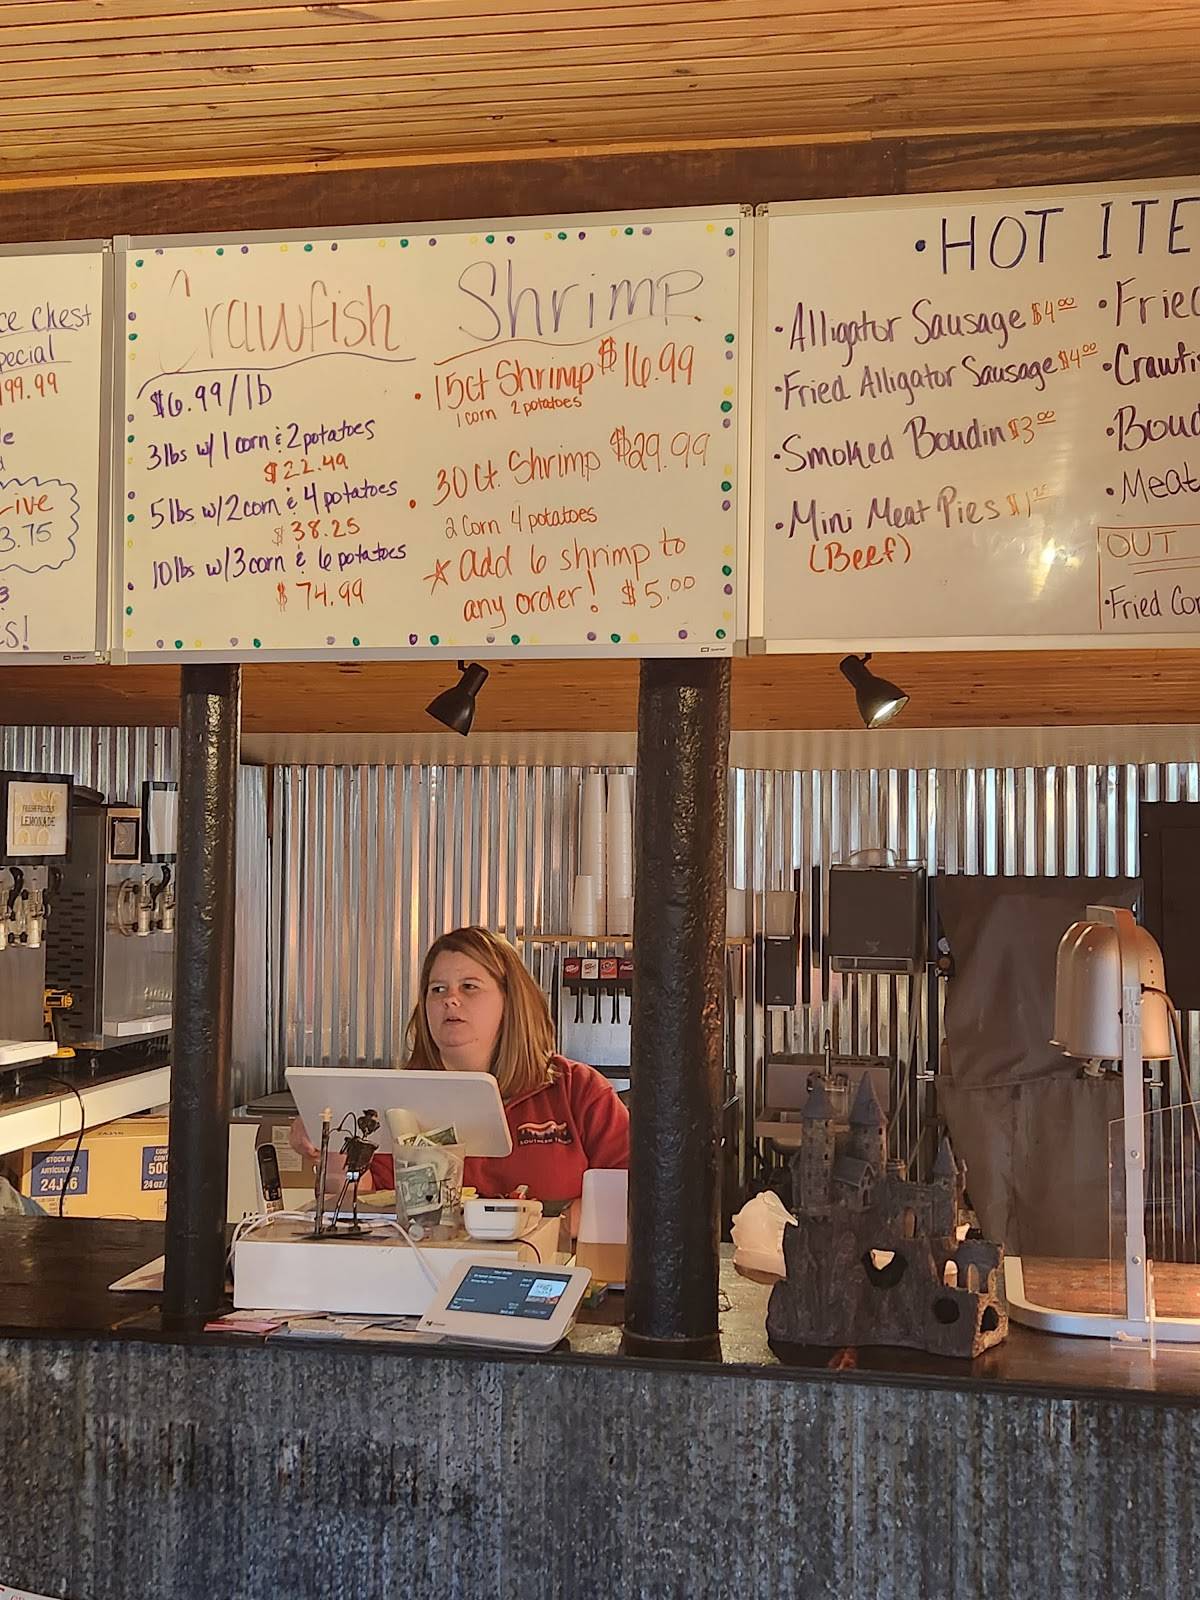 ce Chest
pecial
199.99
Live
3.75
s!
Crawfish
$6.99/lb
3lbs w/ 1 corn & 2 potatoes
$22.49
5lbs w/2 corn & 4 potatoes
$38.25
10lbs w/3 corn & 6 potatoes
$74.99
Shrimp
• 15ct Shrimp $16.99
1 corn 2 potatoes
• 30 Ct. Shrimp $29.99
2 Corn 4 potatoes
* add 6 shrimp to
any order! $5.00
• HOT ITE
• Alligator Sausage $4.00
• Fried Alligator Sausage $4.00
• Smoked Boudin $3.00
• Mini Meat Pies $1.25
(Beef)
• Fried
• Crawfi
• Boud
• Meat
OUT
• Fried Cor
LEMONADE
STOCK NO.
ARTÍCULO NO.
24J16
500
24 oz/
SOUTHERN